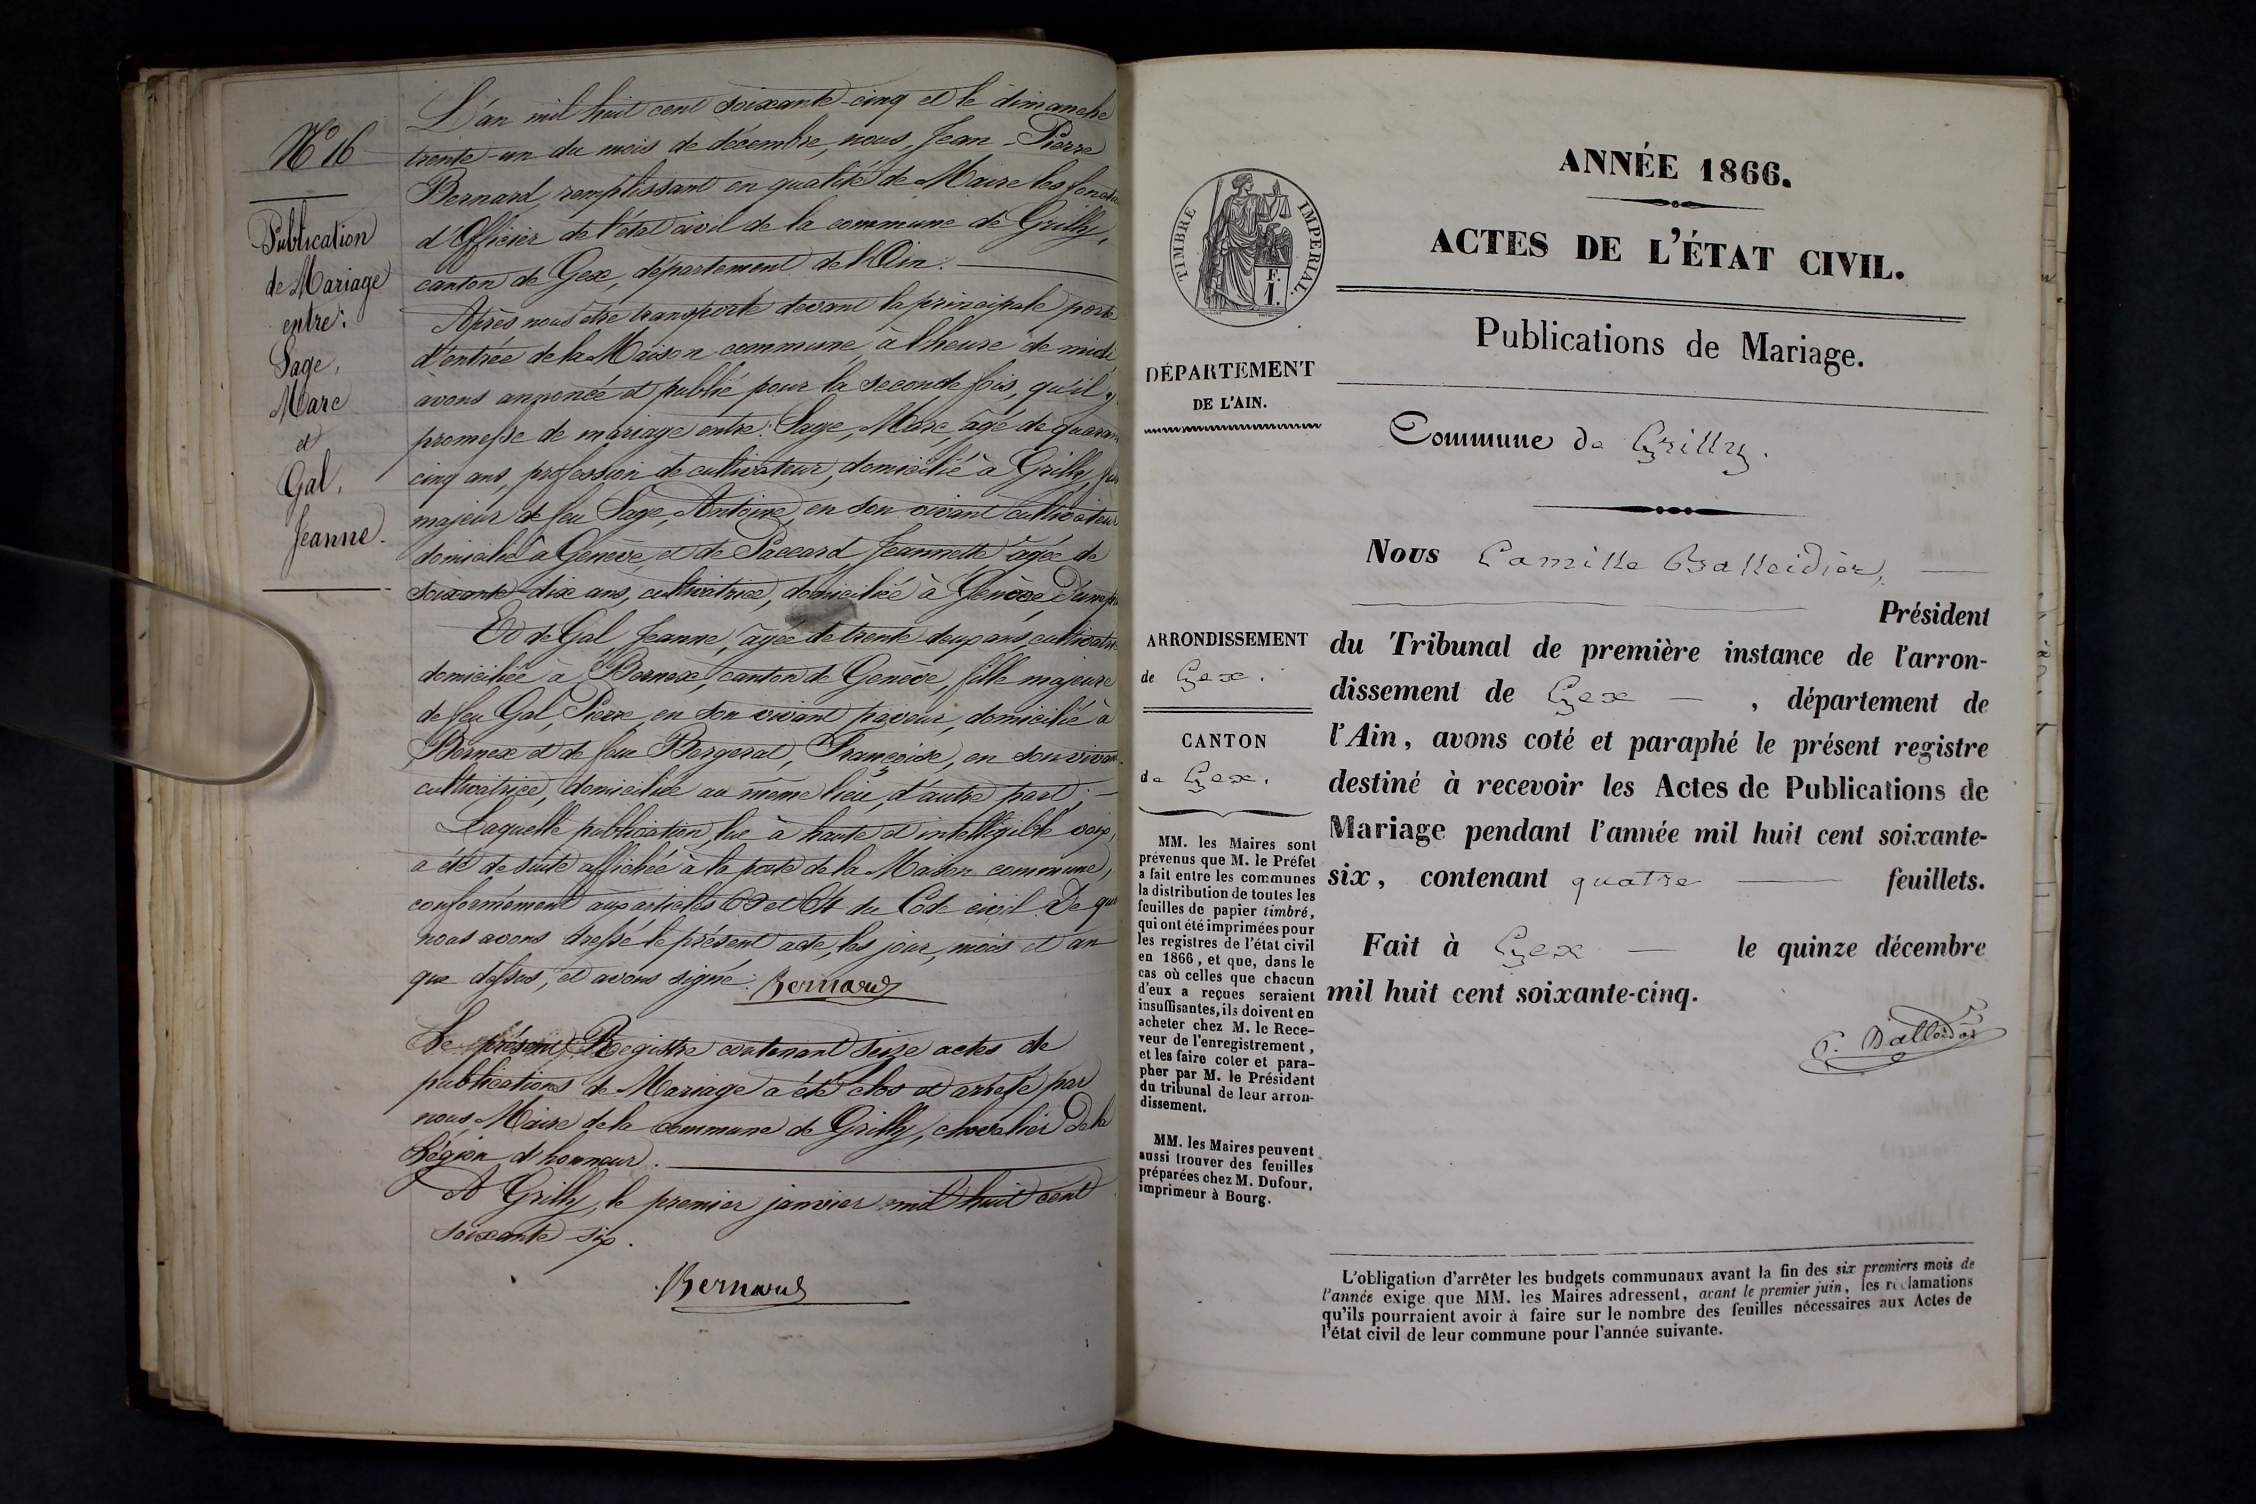 N° 16
Publication
de Mariage
entre :
Sage,
Marc
et
Gal,
Jeanne.
L'an mil huit cent soixante-cinq et le dimanche
trente-un du mois de décembre, nous, Jean-Pierre
Bernard, remplissant en qualité de Maire les
d'Officier de l'état civil de la commune de Grilly,
canton de Gex, département de l'Ain.
Après nous être transporté devant la principale porte
d'entrée de la Maison commune, à l'heure de midi
avons annoncé et publié pour la seconde fois, qu'il y
promesse de mariage entre : Sage, Marc, âgé de
cinq ans, profession de cultivateur, domicilié à Grilly,
majeur de feu Sage, Antoine, en son vivant cultivateur
domicilié à Genève, et de Paccard, Jeannette âgée de
soixante-dix ans, cultivatrice, domiciliée à Genève d'une
Et de Gal, Jeanne, âgée de trente deux ans,
domiciliée à Bernex, canton de Genève, fille majeure
de feu Gal, Pierre, en son vivant paveur, domicilié à
Bernex et de feue Bergerat, Françoise, en son
cultivatrice, domiciliée au même lieu, d'autre part ;
Laquelle publication, lue à haute et intelligible voix,
a été de suite affichée à la porte de la Maison commune,
conformément aux articles 63 et 64 du Code civil. De
nous avons dressé le présent acte, les jour, mois et an
que dessus, et avons signé : Bernard
Le présent Registre contenant seize actes de
publications de Mariage a été clos et arrêté par
nous Maire de la commune de Grilly, chevalier de la
Légion d'honneur.
A Grilly, le premier janvier mil huit cent
soixante-six.
Bernard
TIMBRE IMPERIAL.
F.
1.
DÉPARTEMENT
DE L'AIN.
ARRONDISSEMENT
de Gex.
CANTON
de Gex.
MM. les Maires sont
prévenus que M. le Préfet
a fait entre les communes
la distribution de toutes les
feuilles de papier timbré,
qui ont été imprimées pour
les registres de l'état civil
en 1866, et que, dans le
cas où celles que chacun
d'eux a reçues seraient
insuffisantes, ils doivent en
acheter chez M. le Rece-
veur de l'enregistrement,
et les faire coter et para-
pher par M. le Président
du tribunal de leur arron-
dissement.
MM. les Maires peuvent
aussi trouver des feuilles
préparées chez M. Dufour,
imprimeur à Bourg.
ANNÉE 1866.
ACTES DE L'ÉTAT CIVIL.
Publications de Mariage.
Commune de Grilly.
Nous Camille Balleidier,
Président
du Tribunal de première instance de l'arron-
dissement de Gex, département de
l'Ain, avons coté et paraphé le présent registre
destiné à recevoir les Actes de Publications de
Mariage pendant l'année mil huit cent soixante-
six, contenant quatre feuillets.
Fait à Gex le quinze décembre
mil huit cent soixante-cinq.
C. Balleidier
L'obligation d'arrêter les budgets communaux avant la fin des six premiers mois de
l'année exige que MM. les Maires adressent, avant le premier juin, les réclamations
qu'ils pourraient avoir à faire sur le nombre des feuilles nécessaires aux Actes de
l'état civil de leur commune pour l'année suivante.